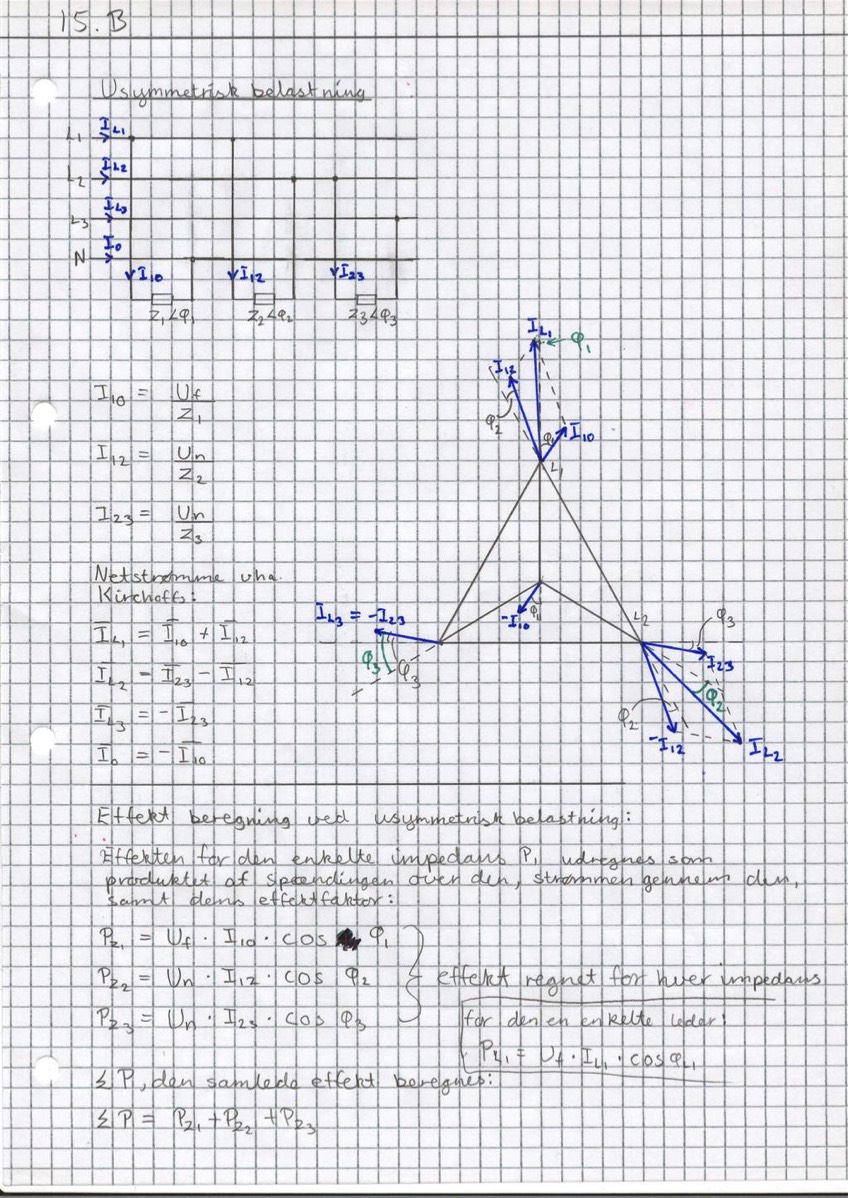 15.B
Usymmetrisk belastning
L1 IL1
L2 IL2
L3 IL3
N I0
I10 I12 I23
Z1∠φ1 Z2∠φ2 Z3∠φ3
IL1 φ1
I12
φ2 φ1 I10
L1
I10 = Uf / Z1
I12 = Un / Z2
I23 = Un / Z3
Netstrømme vha.
Kirchoffs:
IL1 = I10 + I12
IL2 = I23 - I12
IL3 = - I23
I0 = - I10
IL3 = -I23
φ3 φ3
-I10 φ1
L2
φ3
I23
φ2
φ2
-I12
IL2
Effekt beregning ved usymmetrisk belastning:
Effekten for den enkelte impedans P, udregnes som
produktet af spændingen over den, strømmen gennem den,
samt dens effektfaktor:
PZ1 = Uf · I10 · cos φ1
PZ2 = Un · I12 · cos φ2
PZ3 = Un · I23 · cos φ3
effekt regnet for hver impedans
for den en enkelte leder:
PL1 = Uf · IL1 · cos φL1
ΣP, den samlede effekt beregnes:
ΣP = PZ1 + PZ2 + PZ3